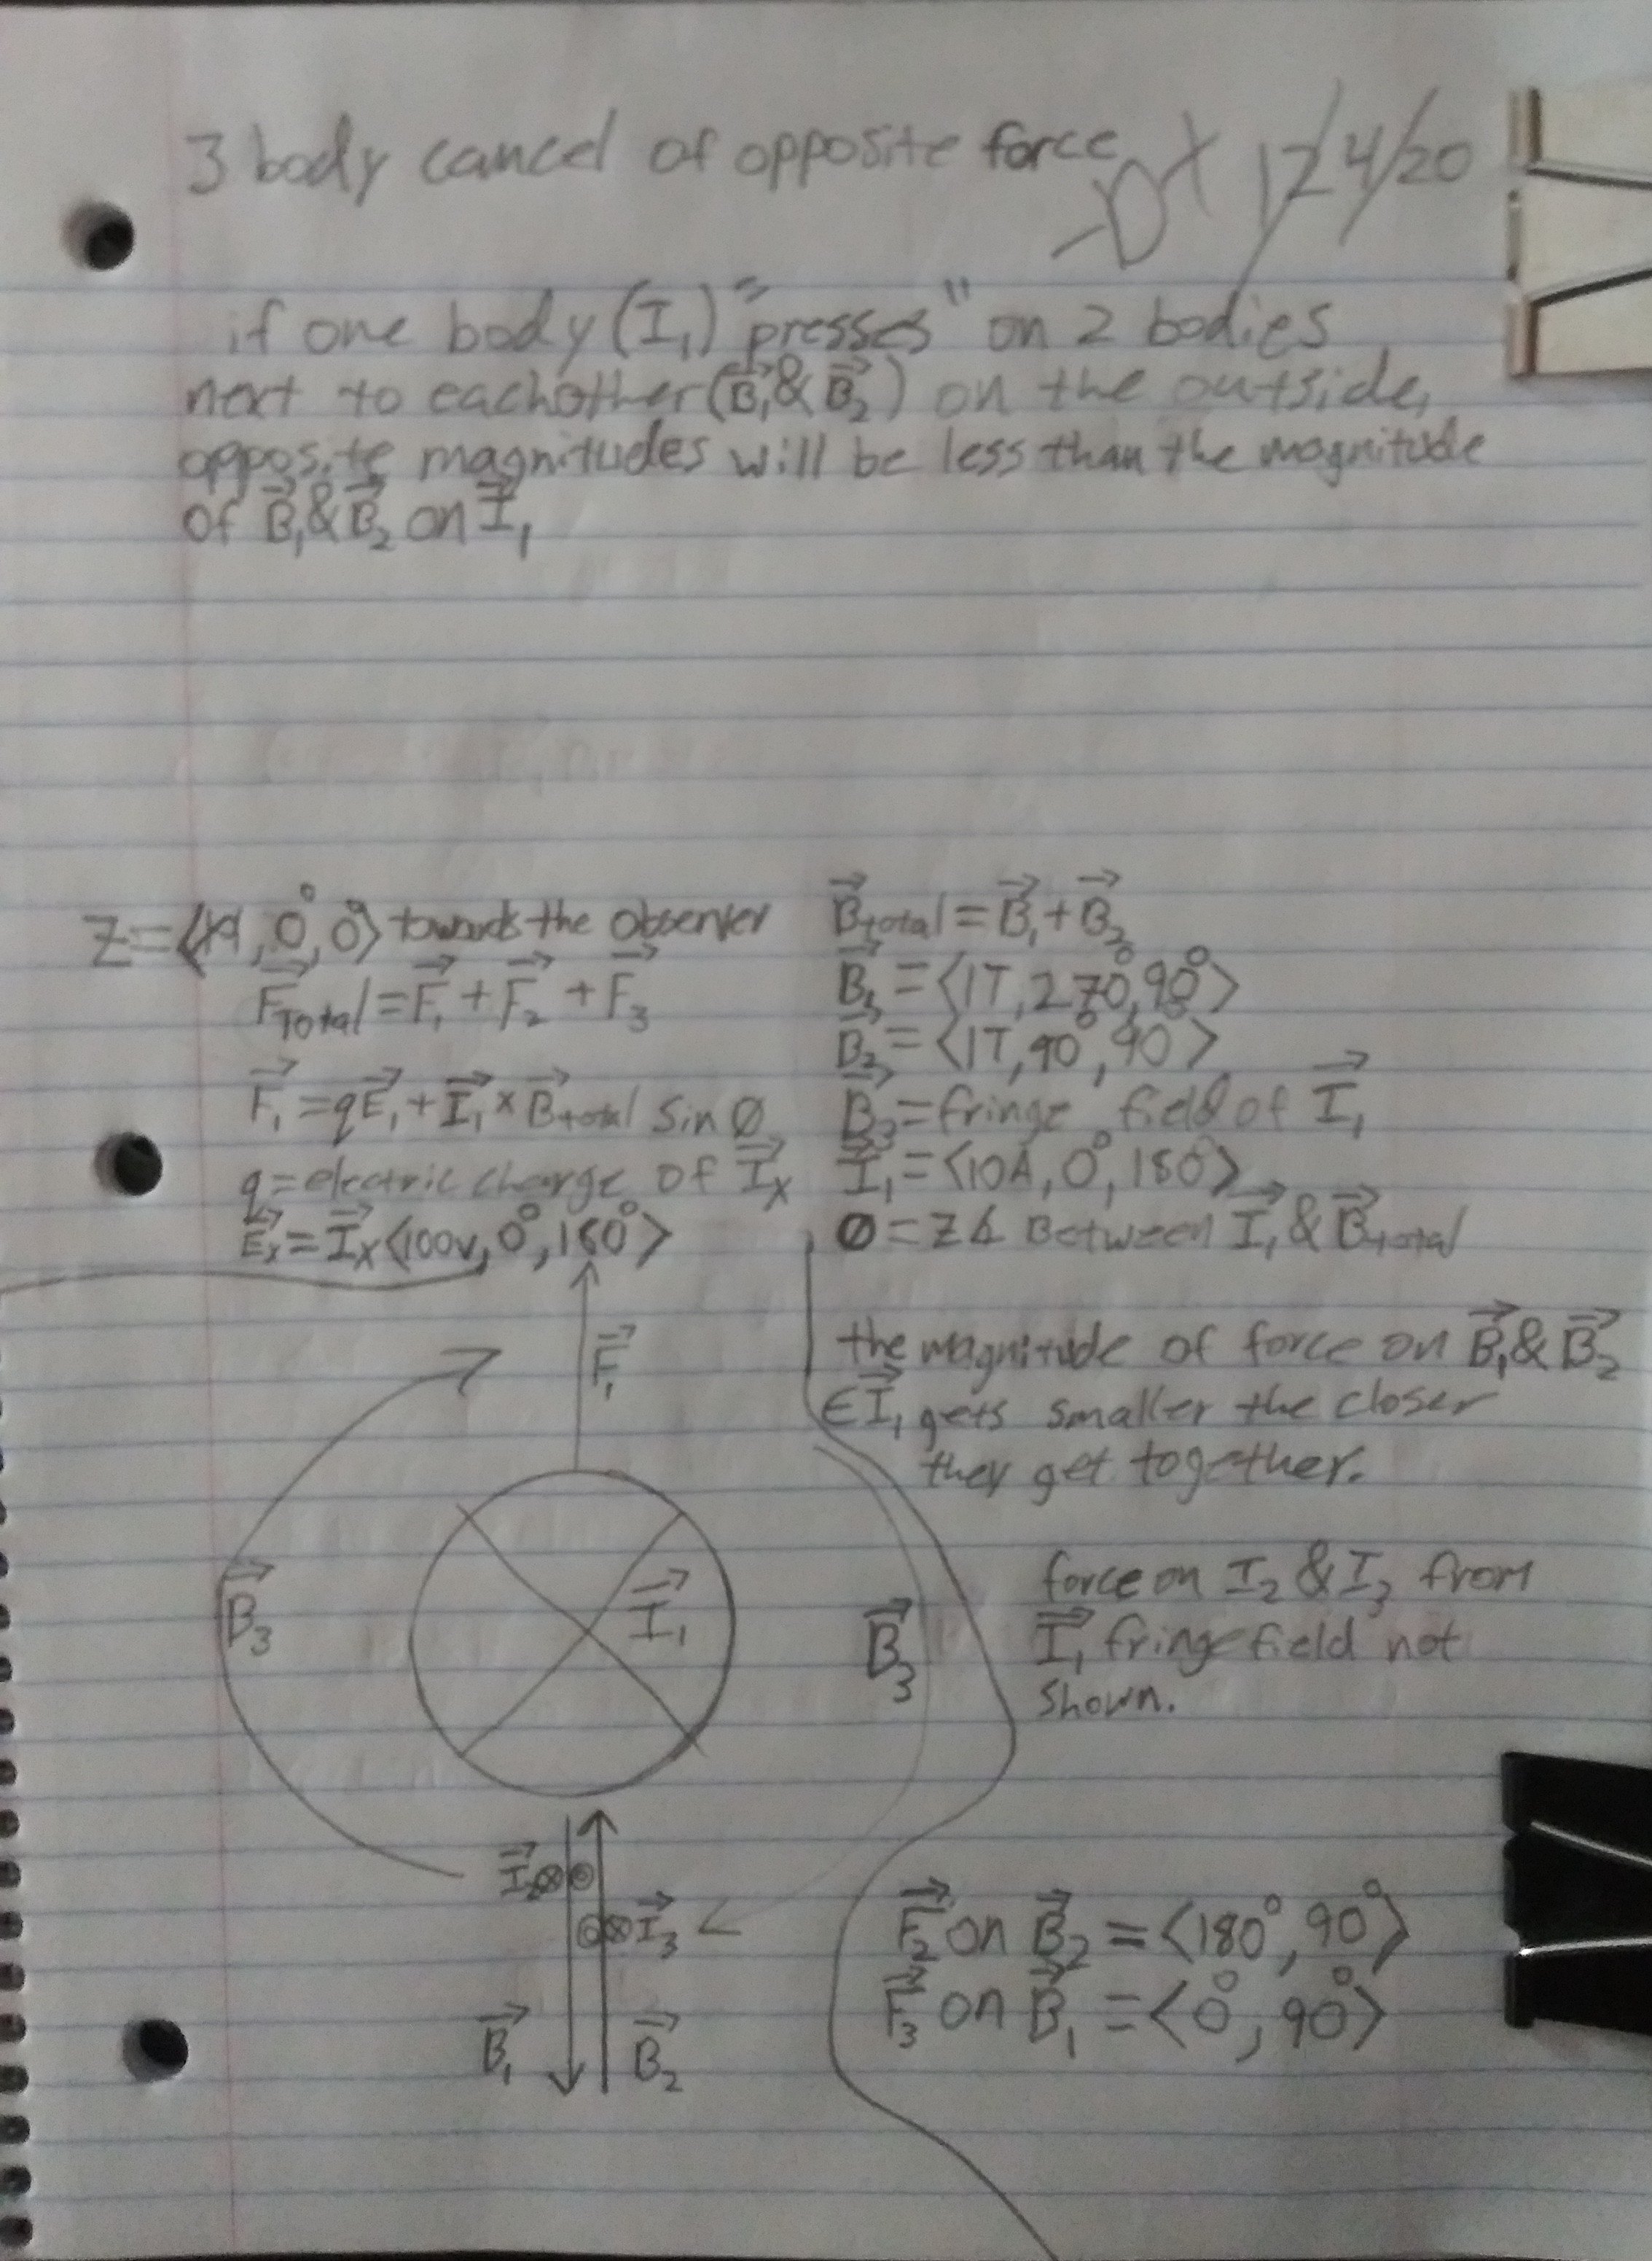 3 body cancel of opposite force
12/4/20
if one body (I₁) "presses" on 2 bodies
next to eachother (B⃗₁ & B⃗₂) on the outside,
opposite magnitudes will be less than the magnitude
of B⃗₁ & B⃗₂ on I⃗₁
Z = ⟨ , 0°, 0°⟩ towards the observer
F⃗Total = F⃗₁ + F⃗₂ + F⃗₃
F⃗₁ = qE⃗₁ + I⃗₁ × B⃗total sin Ø
q = electric charge of I⃗x
E⃗x = I⃗x ⟨100v, 0°, 180°⟩
B⃗total = B⃗₁ + B⃗₂
B⃗₁ = ⟨1T, 270°, 90°⟩
B⃗₂ = ⟨1T, 90°, 90°⟩
B⃗₃ = fringe field of I⃗₁
I⃗₁ = ⟨10A, 0°, 180°⟩
Ø = Z∡ Between I⃗₁ & B⃗total
the magnitude of force on B⃗₁ & B⃗₂
∈ I⃗₁ gets smaller the closer
they get together.
force on I₂ & I₃ from
I⃗₁ fringe field not
shown.
F⃗₁
B⃗₃
I⃗₁
B⃗₃
I⃗₂
I⃗₃
B⃗₁
B⃗₂
F⃗₂ on B⃗₂ = ⟨180°, 90°⟩
F⃗₃ on B⃗₁ = ⟨0°, 90°⟩